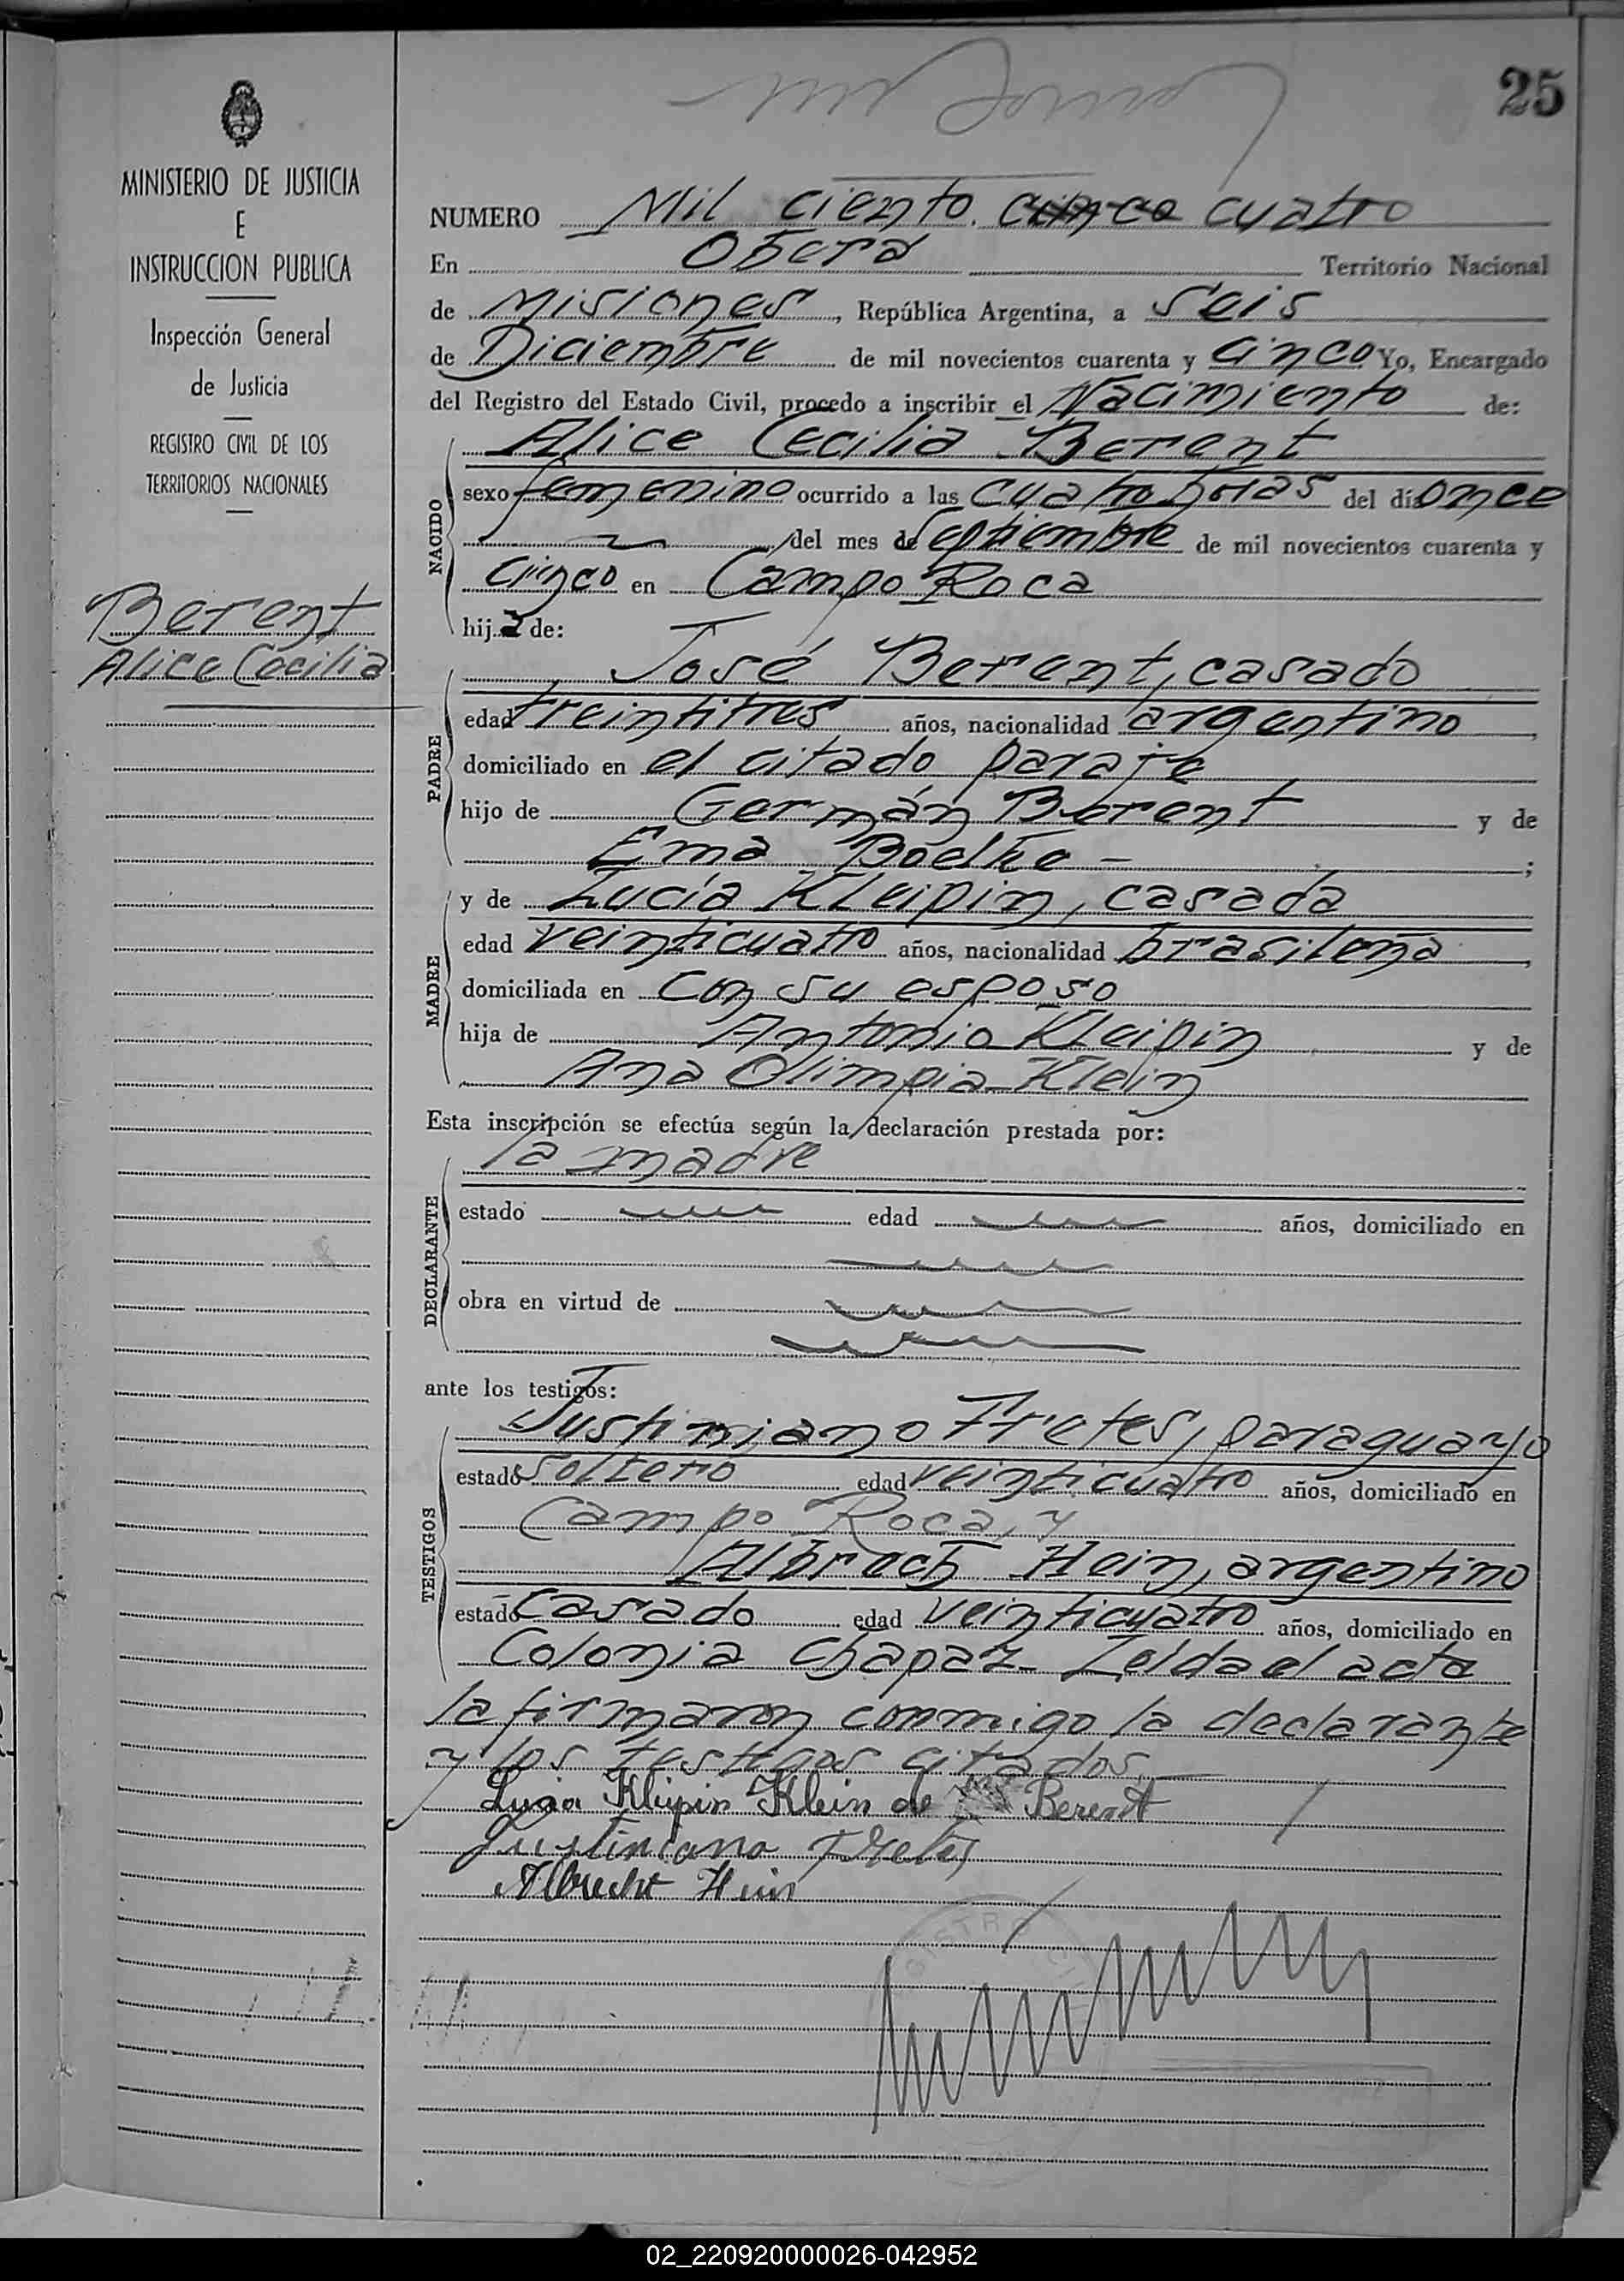 25
MINISTERIO DE JUSTICIA
E
INSTRUCCION PUBLICA
Inspección General
de Justicia
REGISTRO CIVIL DE LOS
TERRITORIOS NACIONALES
Berent
Alice Cecilia
NUMERO Mil ciento cinco cuatro
En Oberá Territorio Nacional
de Misiones, República Argentina, a Seis
de Diciembre de mil novecientos cuarenta y cinco Yo, Encargado
del Registro del Estado Civil, procedo a inscribir el Nacimiento de:
NACIDO
Alice Cecilia Berent
sexo femenino ocurrido a las cuatro horas del día once
del mes de Septiembre de mil novecientos cuarenta y
cinco en Campo Roca
hija de:
PADRE
José Berent, casado
edad treintitres años, nacionalidad argentino,
domiciliado en el citado paraje
hijo de Germán Berent y de
Ema Boelke - ;
MADRE
y de Lucía Kleipin, casada
edad veinticuatro años, nacionalidad brasileña,
domiciliada en con su esposo
hija de Antonio Kleipin y de
Ana Olimpia Klein
Esta inscripción se efectúa según la declaración prestada por:
DECLARANTE
la madre
estado edad años, domiciliado en
obra en virtud de
ante los testigos:
TESTIGOS
Justiniano Fretes, paraguayo
estado soltero edad veinticuatro años, domiciliado en
Campo Roca, y
Albrech Hein, argentino
estado casado edad veinticuatro años, domiciliado en
Colonia Chapaz Leída el acta
la firmaron conmigo la declarante
y los testigos citados.
Luzia Kleipin Klein de Berent
Justiniano Fretes
Albrecht Hein
02_220920000026-042952